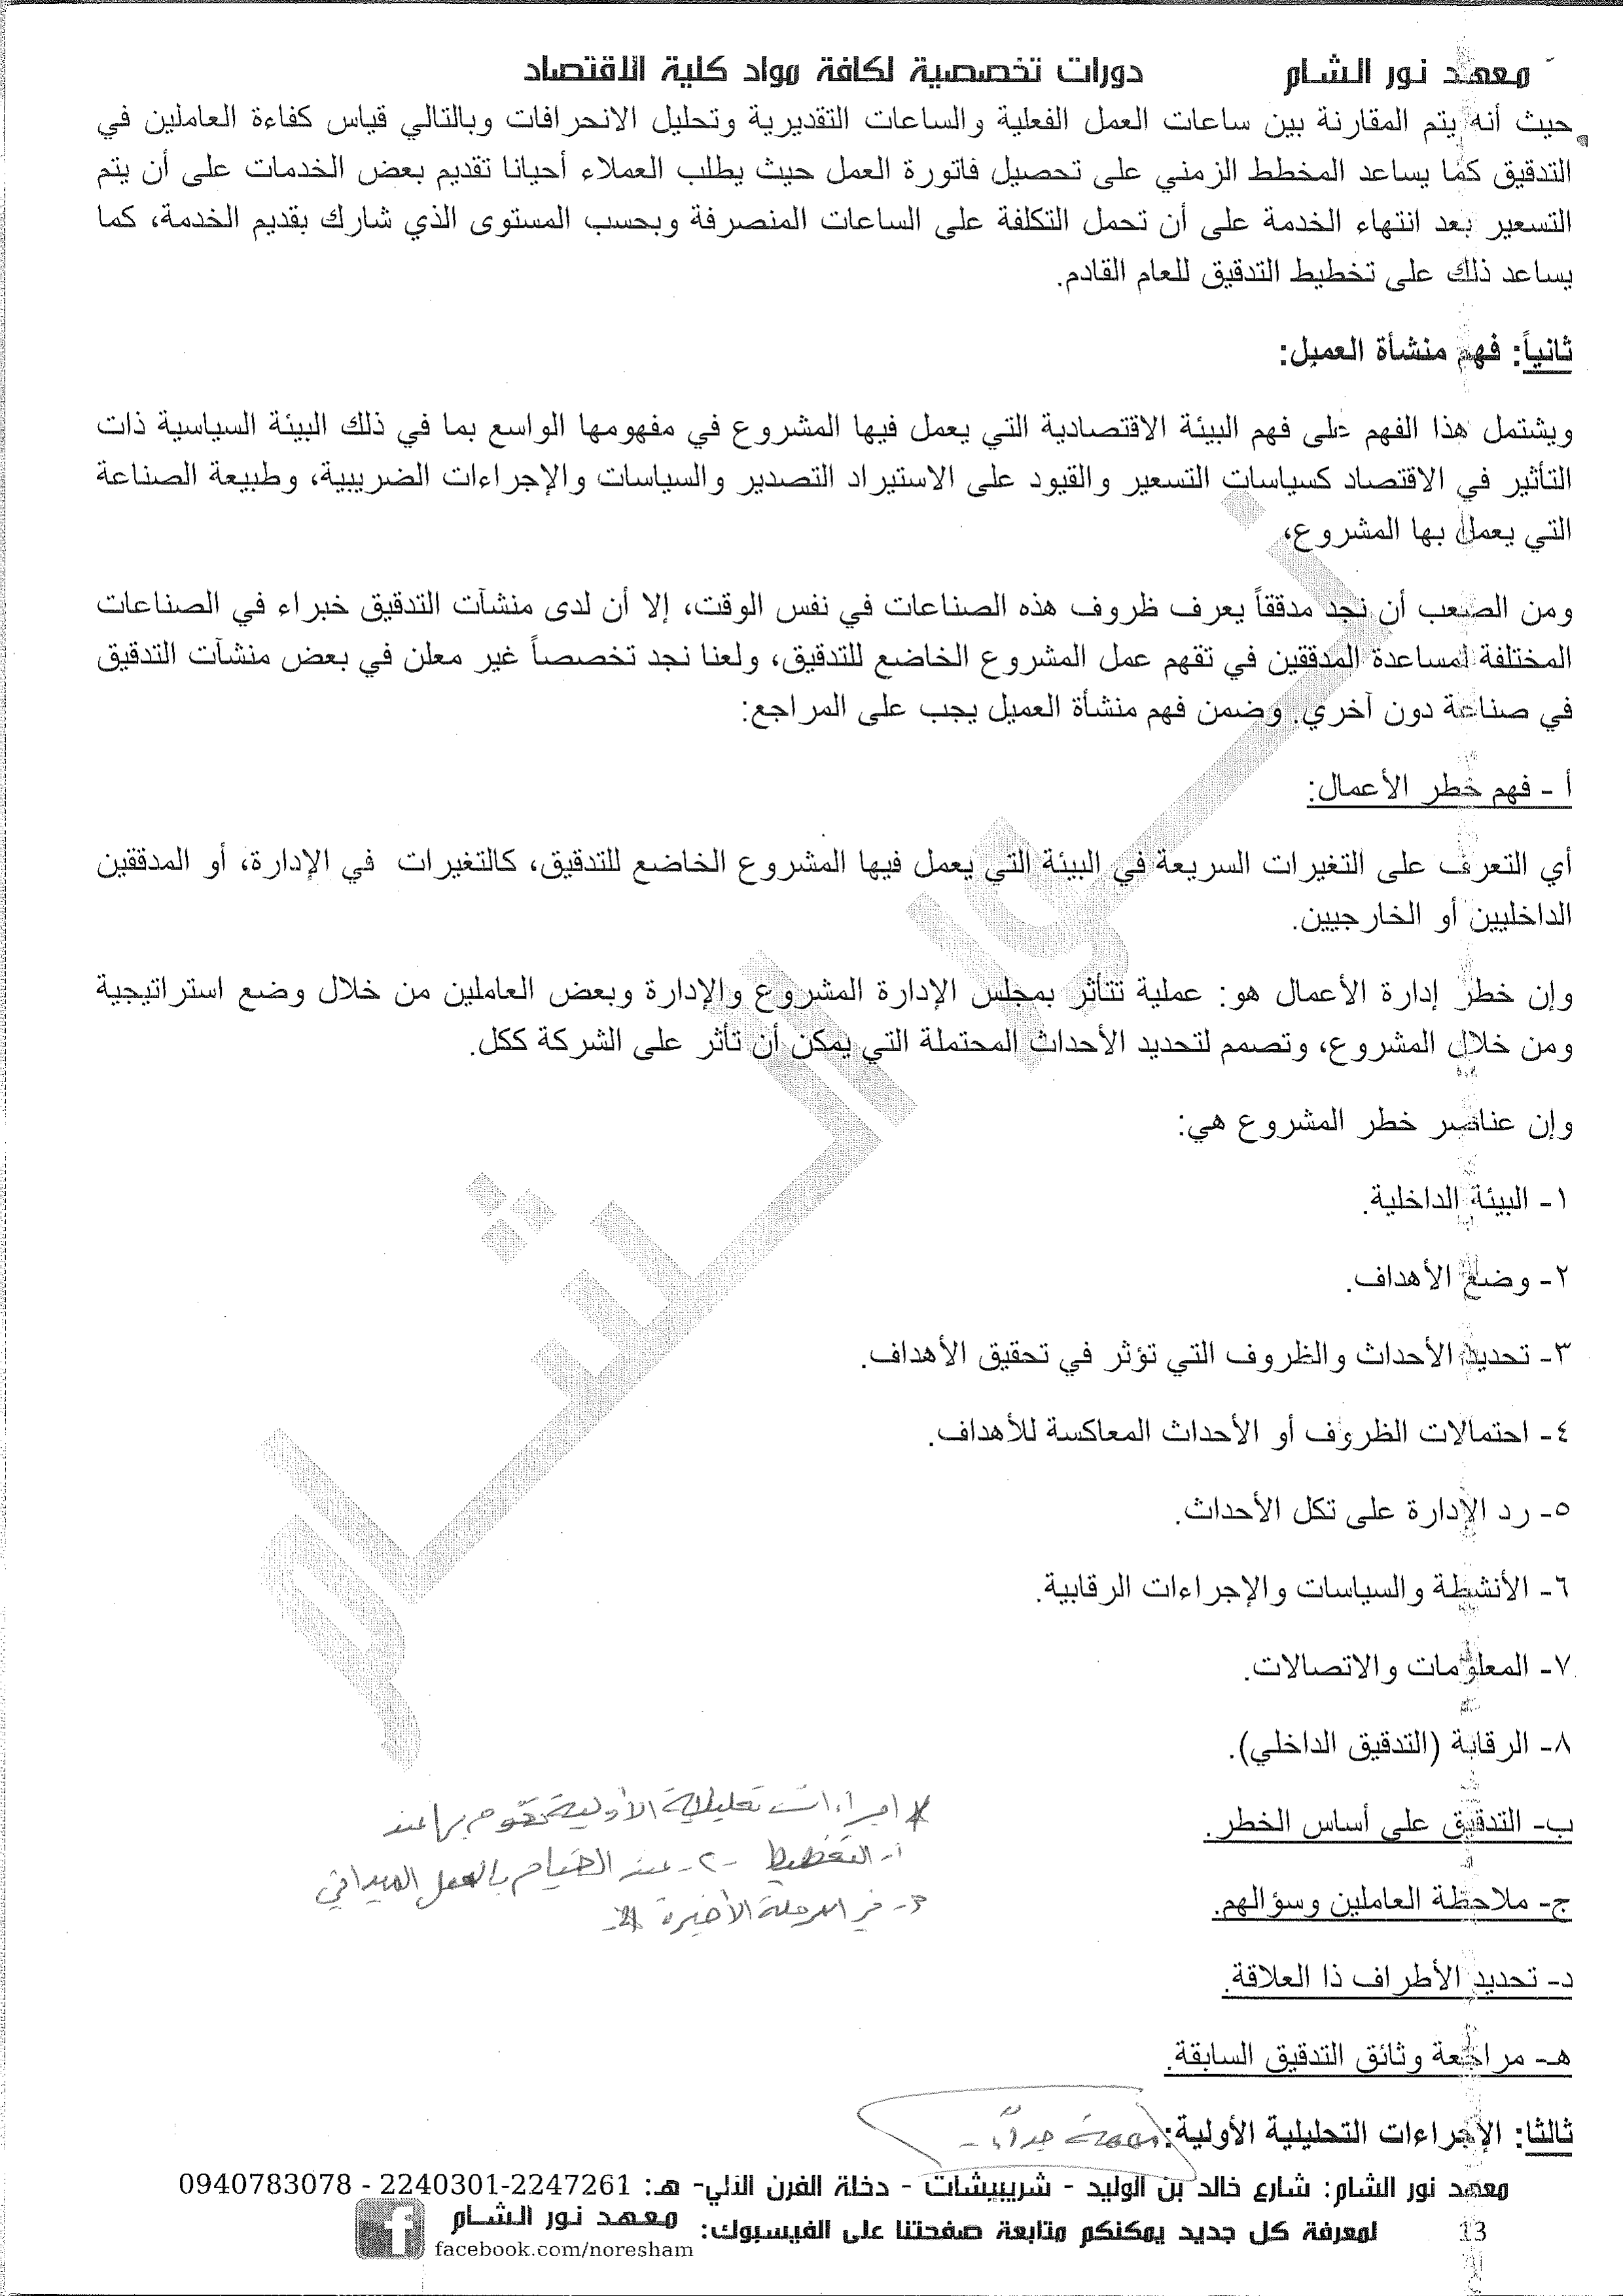 معهد نور الشام دورات تخصصية لكافة مواد كلية الاقتصاد
حيث أنه يتم المقارنة بين ساعات العمل الفعلية والساعات التقديرية وتحليل الانحرافات وبالتالي قياس كفاءة العاملين في
التدقيق كما يساعد المخطط الزمني على تحصيل فاتورة العمل حيث يطلب العملاء أحيانا تقديم بعض الخدمات على أن يتم
التسعير بعد انتهاء الخدمة على أن تحمل التكلفة على الساعات المنصرفة وبحسب المستوى الذي شارك بقديم الخدمة، كما
يساعد ذلك على تخطيط التدقيق للعام القادم.
ثانياً: فهم منشأة العميل:
ويشتمل هذا الفهم على فهم البيئة الاقتصادية التي يعمل فيها المشروع في مفهومها الواسع بما في ذلك البيئة السياسية ذات
التأثير في الاقتصاد كسياسات التسعير والقيود على الاستيراد التصدير والسياسات والإجراءات الضريبية، وطبيعة الصناعة
التي يعمل بها المشروع،
ومن الصعب أن نجد مدققاً يعرف ظروف هذه الصناعات في نفس الوقت، إلا أن لدى منشآت التدقيق خبراء في الصناعات
المختلفة لمساعدة المدققين في تقهم عمل المشروع الخاضع للتدقيق، ولعنا نجد تخصصاً غير معلن في بعض منشآت التدقيق
في صناعة دون آخري. وضمن فهم منشأة العميل يجب على المراجع:
أ - فهم خطر الأعمال:
أي التعرف على التغيرات السريعة في البيئة التي يعمل فيها المشروع الخاضع للتدقيق، كالتغيرات في الإدارة، أو المدققين
الداخليين أو الخارجيين.
وإن خطر إدارة الأعمال هو: عملية تتأثر بمجلس الإدارة المشروع والإدارة وبعض العاملين من خلال وضع استراتيجية
ومن خلال المشروع، وتصمم لتحديد الأحداث المحتملة التي يمكن أن تأثر على الشركة ككل.
وإن عناصر خطر المشروع هي:
١- البيئة الداخلية.
٢- وضع الأهداف.
٣- تحديد الأحداث والظروف التي تؤثر في تحقيق الأهداف.
٤- احتمالات الظروف أو الأحداث المعاكسة للأهداف.
٥- رد الإدارة على تكل الأحداث.
٦- الأنشطة والسياسات والإجراءات الرقابية.
٧- المعلومات والاتصالات.
٨- الرقابة (التدقيق الداخلي).
* إجراءات تحليلية الأولية نقوم بها عند
ب- التدقيق على أساس الخطر.
١- التخطيط -٢- عند القيام بالعمل الميداني
ج- ملاحظة العاملين وسؤالهم.
٣- في المرحلة الأخيرة
د- تحديد الأطراف ذا العلاقة.
هـ- مراجعة وثائق التدقيق السابقة.
ثالثا: الإجراءات التحليلية الأولية: مهمة جداً
معهد نور الشام: شارع خالد بن الوليد - شريبيشات - دخلة الفرن الآلي- هـ: 2247261-2240301 - 0940783078
13 لمعرفة كل جديد يمكنكم متابعة صفحتنا على الفيسبوك: معهد نور الشام
facebook.com/noresham
نور الشام